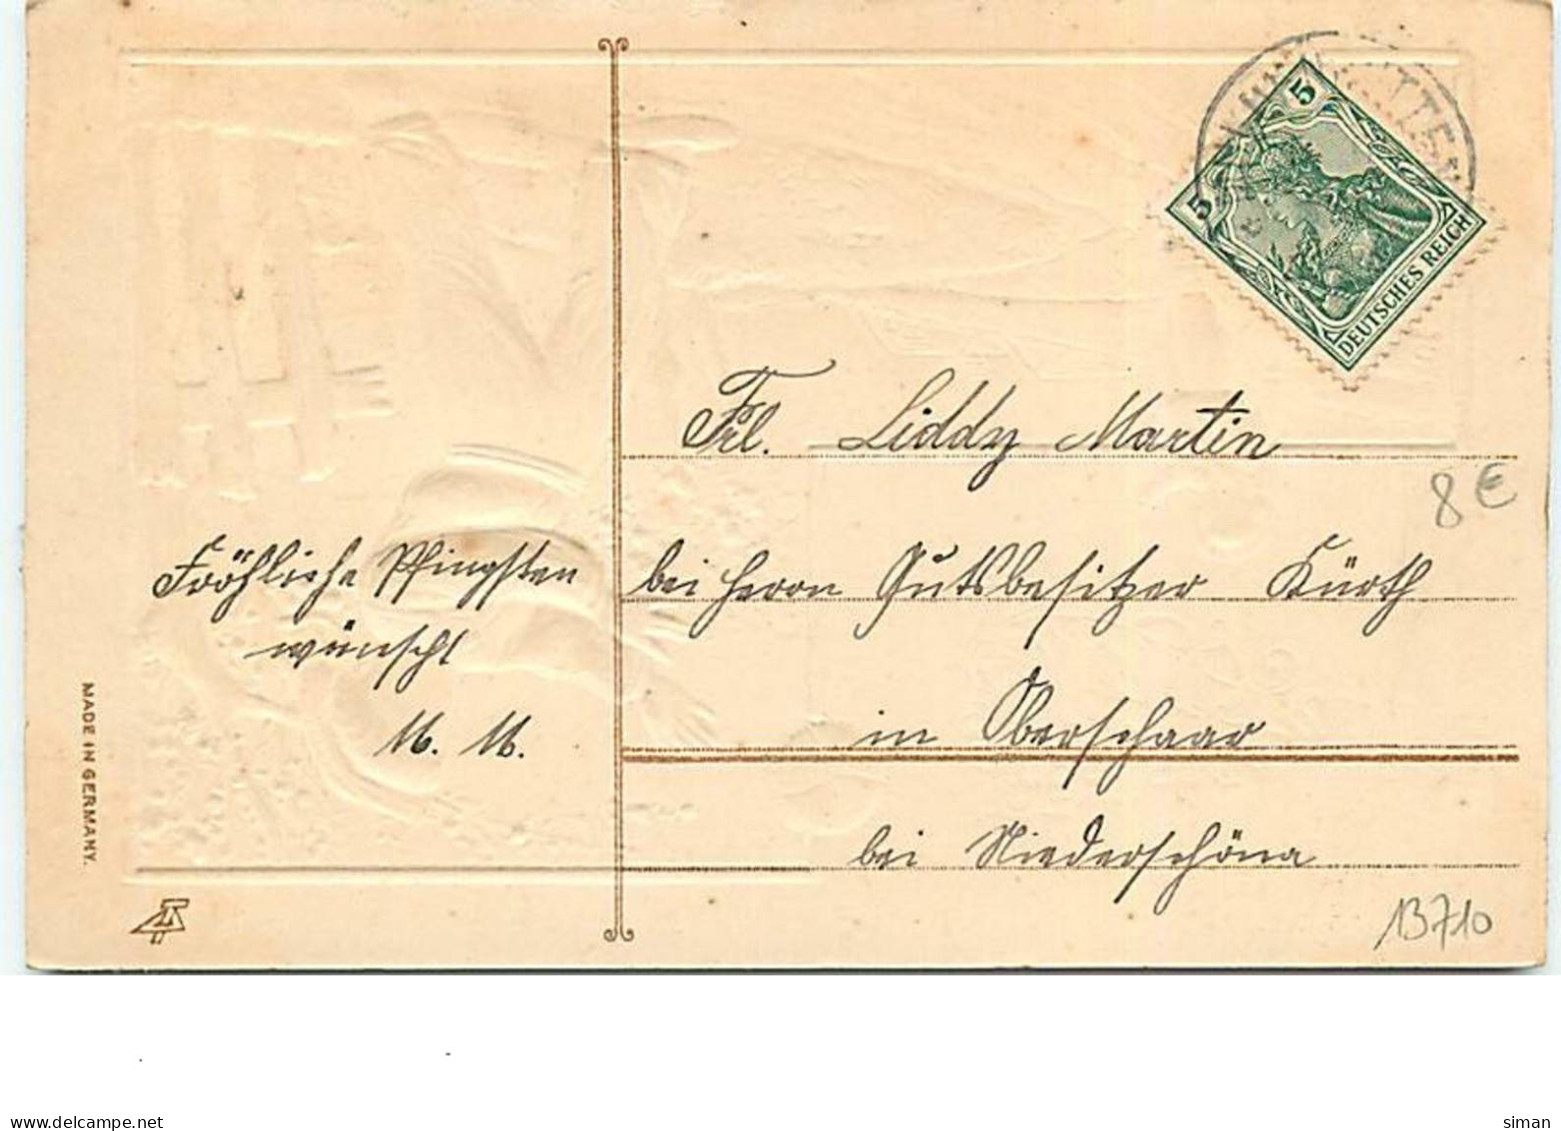 5
5
DEUTSCHES REICH
Frl. Liddy Martin
8 €
Fröhliche Pfingsten
wünscht
M. M.
bei Herrn Gutsbesitzer Kürth
in Oberschaar
bei Niederschöna
MADE IN GERMANY.
13710
delcampe.net
siman